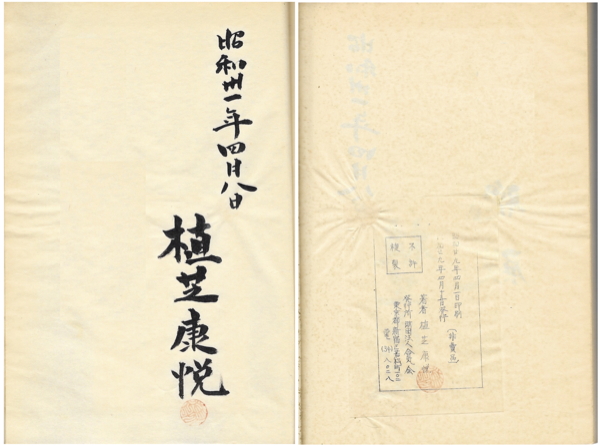 昭和卅一年四月八日
植芝康悦
九年四月一日印刷
九年四月十五日発行
(非賣品)
不許
複製
著者 植芝康悦
発行所 財団法人合気会
東京都新宿区若松町一〇二
電(34)八〇二八